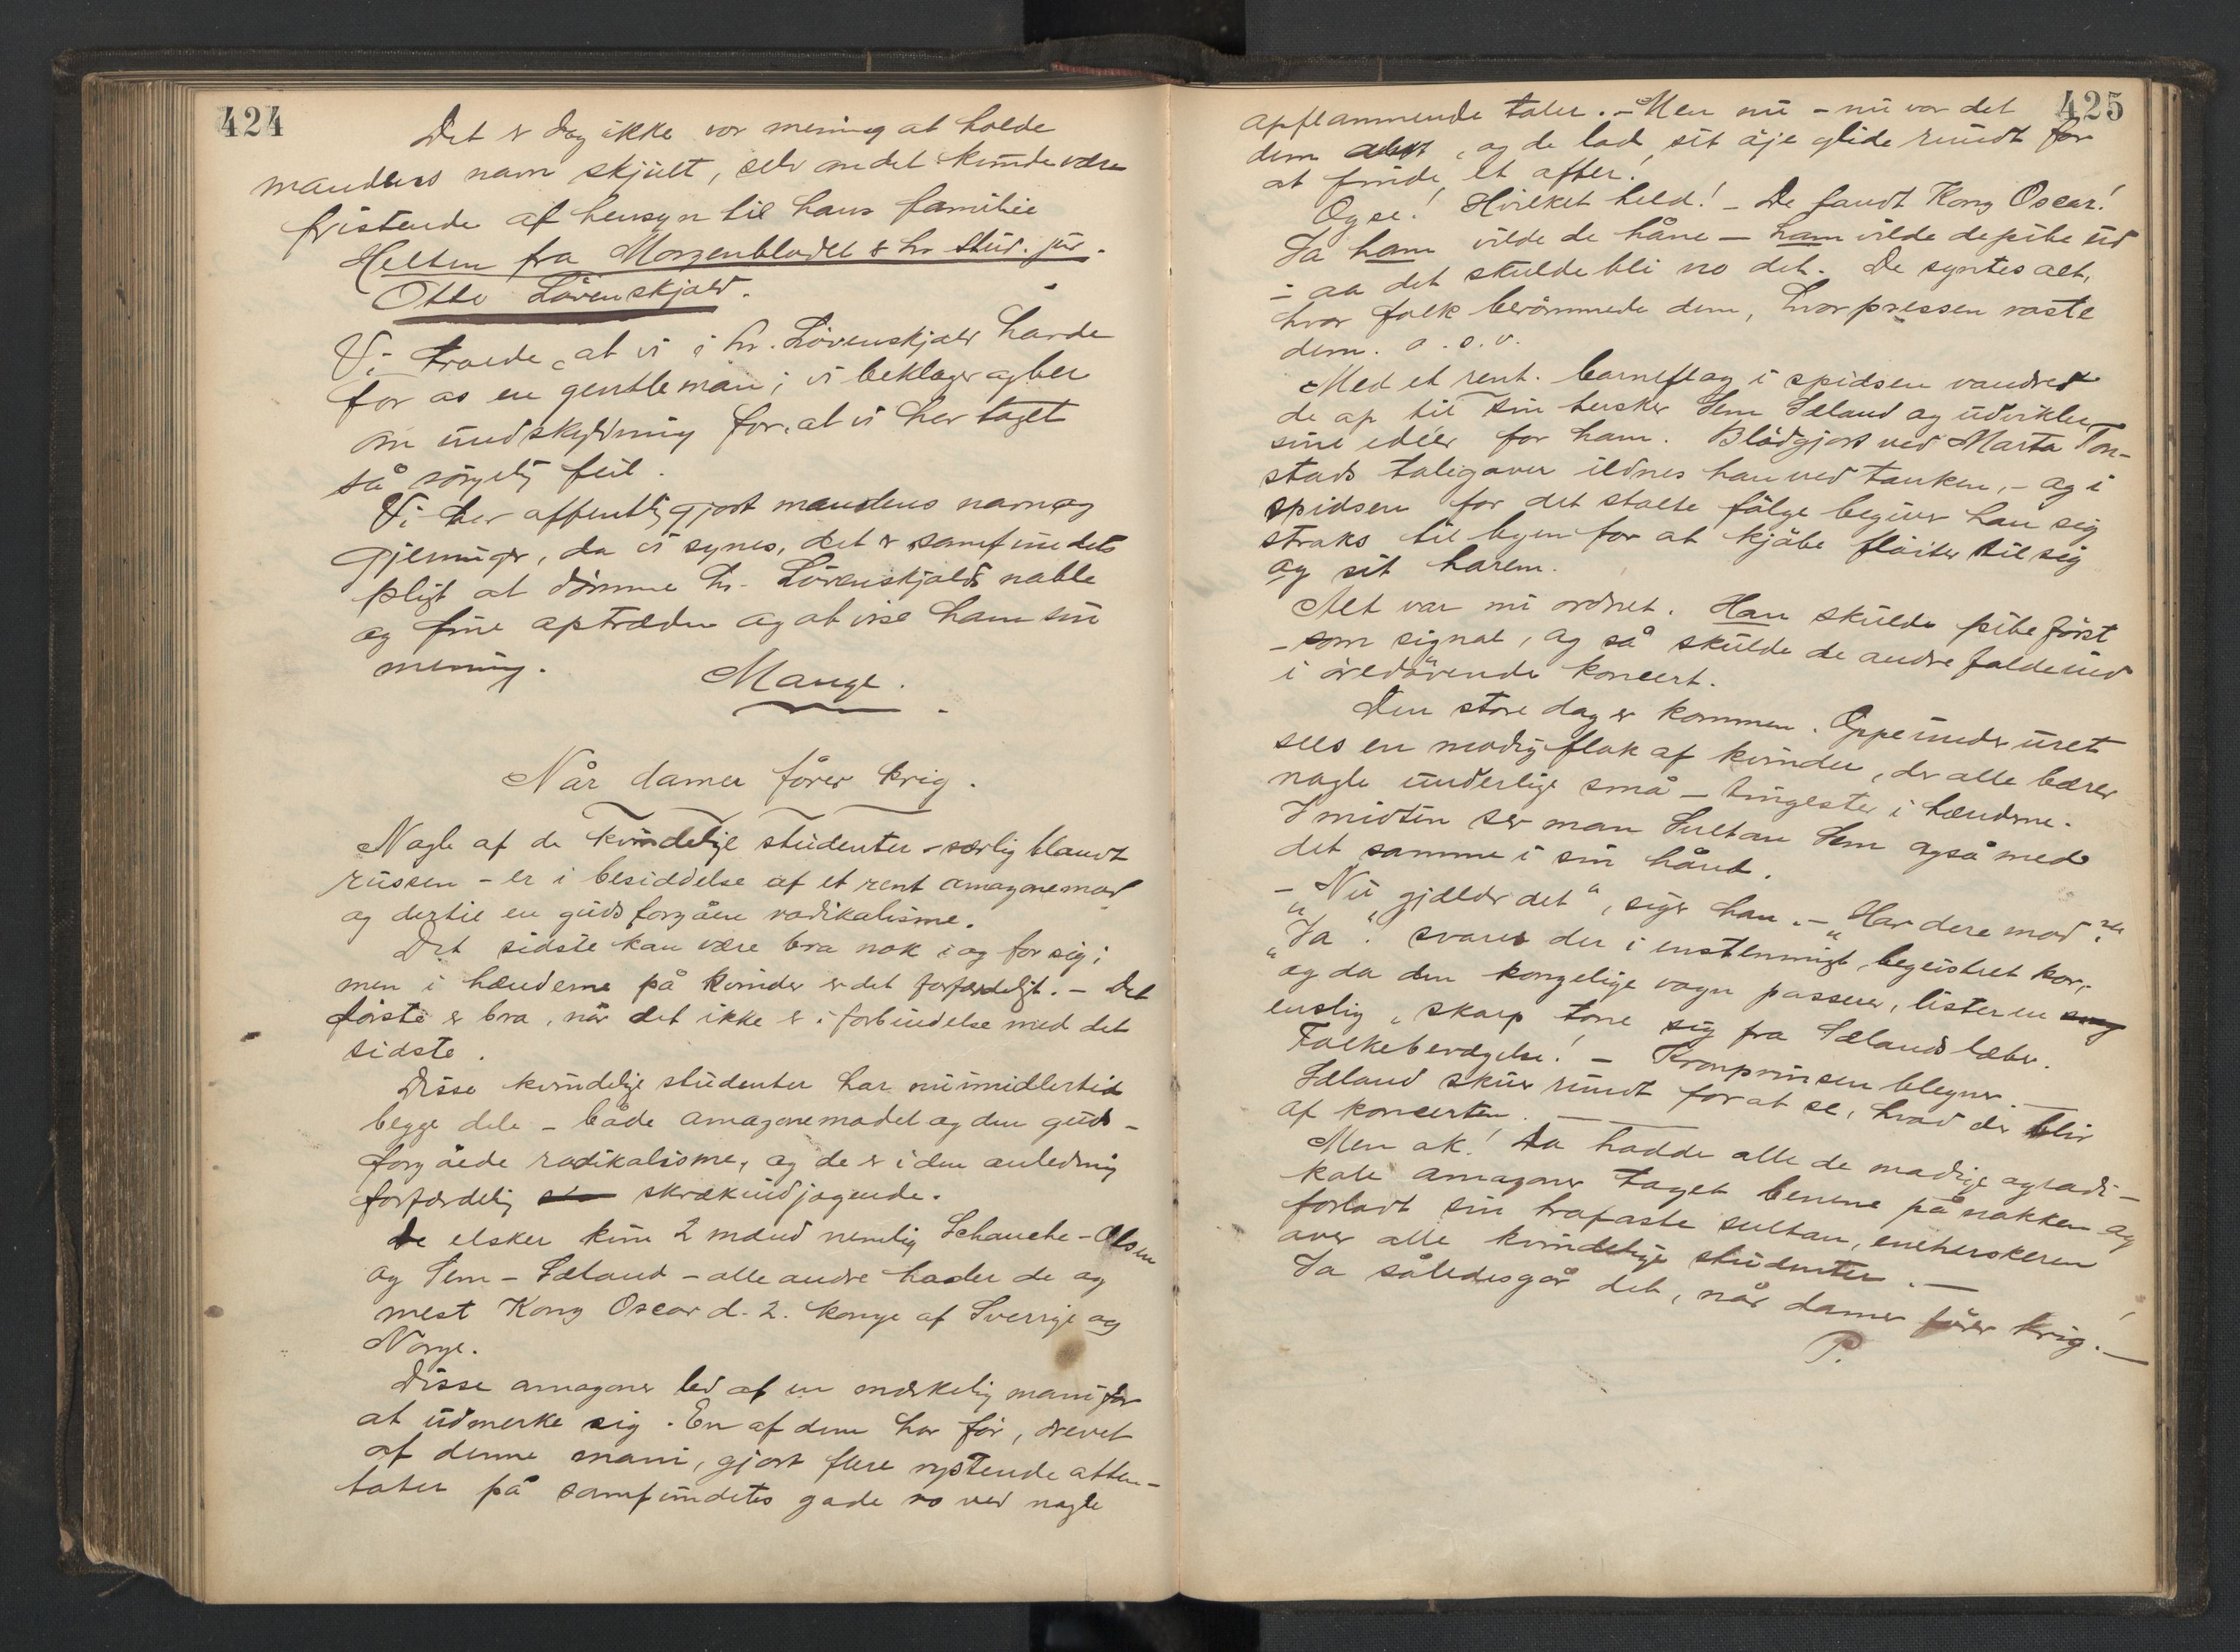 424
Det er dog ikke vor mening at holde
mandens navn skjult, selv om det kunde være
fristende af hensyn til hans familie
Helten fra Morgenbladet er hr. stud. jur.
Otto Lövenskjold.
Vi troede, at vi i hr. Lövenskjold havde
for os en gentleman; vi beklager og ber
om undskyldning for, at vi har taget
så sörgelig feil.
Vi har offentliggjort mandens navn og
gjerninger, da vi synes, det er samfundets
pligt at dömme hr. Lövenskjolds noble
og fine optræden og at vise ham sin
mening.
Mange.
Når damer förer krig.
Nogle af de kvindelige studenter - særlig blandt
russen - er i besiddelse af et rent amazonemod
og dertil en gudsforgåen radikalisme.
Det sidste kan være bra nok i og for sig;
men i hænderne på kvinder er det forfærdeligt. - Det
förste er bra, når det ikke er i forbindelse med det
sidste.
Disse kvindelige studenter har nu imidlertid
begge dele - både amazonemodet og den guds-
forgåede radikalisme, og de er i den anledning
forfærdelig skrækindjagende.
De elsker kun 2 mænd nemlig Schanche-Olsen
og Sem-Sæland - alle andre hader de og
mest Kong Oscar d. 2. konge af Sverrige og
Norge.
Disse amazoner led af en mærkelig mani for
at udmerke sig. En af dem har för, drevet
af denne mani, gjort flere rystende atten-
tater på samfundets gode ro ved nogle
425
opflammende taler. - Men nu - nu var det
dem , og de lod sit öje glide rundt for
at finde et offer!
Og se! Hvilket held! - De fandt Kong Oscar!
Ja ham vilde de håne - ham vilde de pibe ud
- aa det skulde bli no det. De syntes alt,
hvor folk berömmede dem, hvor pressen roste
dem. o.s.v.
Med et rent flag i spidsen vandret
de op til sin hersker Sem Sæland og udvikler
sine idéer for ham. Blödgjort ved Marta Ton-
stads talegaver ildnes han ved tanken, - og i
spidsen for det stolte fölge begiver han sig
straks til byen for at kjöbe flöiter til sig
og sit harem.
Alt var nu ordnet. Han skulde pibe först
- som signal, og så skulde de andre falde ind
i öredövende koncert.
Den store dag er kommen. Oppe under uret
sees en modig flok af kvinder, der alle bærer
nogle underlige små - tingester i hænderne.
I midten ser man Sultan Sem også med
det samme i sin hånd.
- "Nu gjælder det", siger han. - "Har dere mod?"
"Ja". svares der i enstemmigt, begeistret kor,
og da den kongelige vogn passerer, lister en
enslig, skarp tone sig fra Sælands læber.
Folkebevægelse! - Kronprinsen blegner. -
Sæland skuer rundt for at se, hvad der blir
af koncerten. -
Men ak! Da hadde alle de modige og radi-
kale amazoner taget benene på nakken og
forladt sin trofaste sultan, eneherskeren
over alle kvindelige studenter. -
Ja således går det, når damer förer krig! -
P.